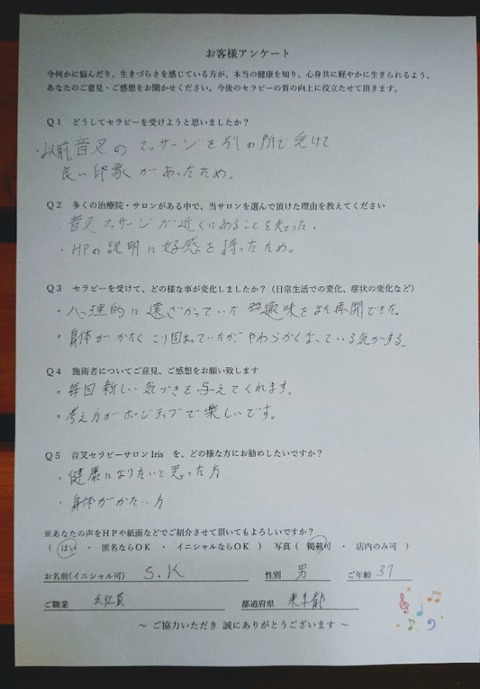 お客様アンケート
今何かに悩んだり、生きづらさを感じている方が、本当の健康を知り、心身共に軽やかに生きられるよう、
あなたのご意見・ご感想をお聞かせください。今後のセラピーの質の向上に役立たせて頂きます。
Q1 どうしてセラピーを受けようと思いましたか?
・以前音叉のマッサージを別の所で受けて
良い印象があったため。
Q2 多くの治療院・サロンがある中で、当サロンを選んで頂けた理由を教えてください
・音叉マッサージが近くにあることを知った。
・HPの説明に好感を持ったため。
Q3 セラピーを受けて、どの様な事が変化しましたか?(日常生活での変化、症状の変化など)
・心理的に遠ざかっていた趣味をまた再開できた。
・身体がかたくこり固まっていたがやわらかくなっている気がする。
Q4 施術者についてご意見、ご感想をお願い致します
・毎回新しい気づきを与えてくれます。
・考え方がポジティブで楽しいです。
Q5 音叉セラピーサロン Iris を、どの様な方にお勧めしたいですか?
・健康になりたいと思った方
・身体がかたい方
※あなたの声をHPや紙面などでご紹介させて頂いてもよろしいですか?
( はい ・ 匿名ならOK ・ イニシャルならOK ) 写真 ( 掲載可 ・ 店内のみ可 )
お名前(イニシャル可) S.K 性別 男 ご年齢 37
ご職業 会社員 都道府県 東京都
~ ご協力いただき 誠にありがとうございます ~